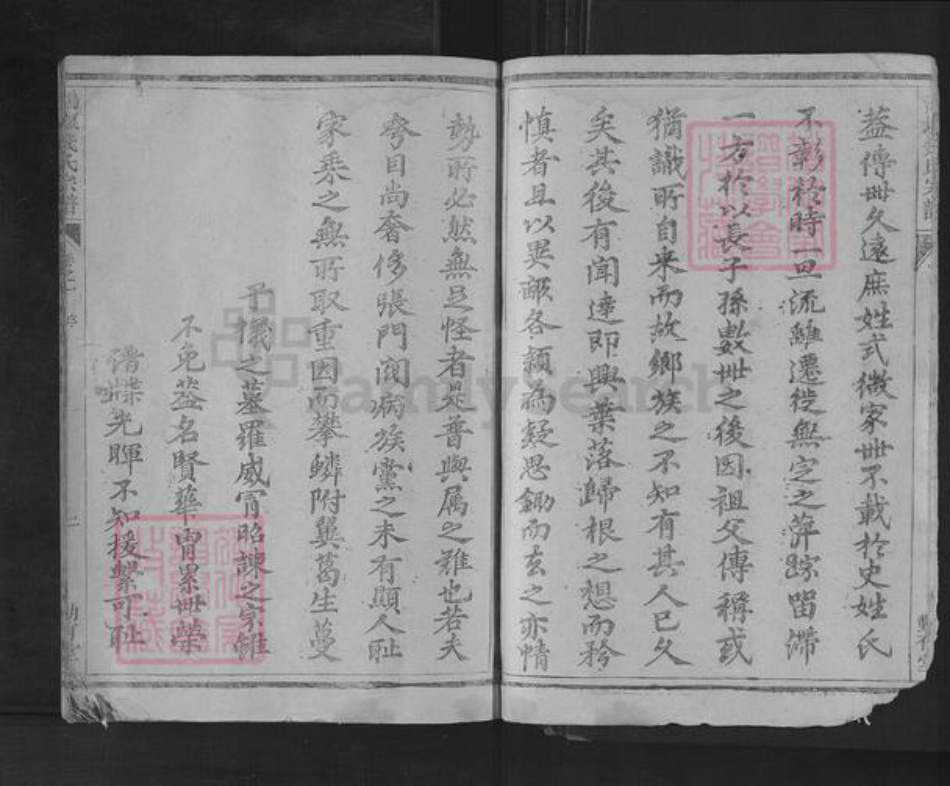 蓋傳世久遠庶姓式微家世不載於史姓氏
不彰於時一旦流離遷徙無定之萍踪留滯
一方於以長子孫數世之後因祖父傳稱或
猶識所自来而故鄉族之不知有其人已久
矣其後有聞達即興葉落歸根之想而矜
慎者且以異酸各類為疑思鋤而去之亦情
勢所必然無足怪者是普與属之難也若夫
夸目尚奢侈張門閥病族黨之未有顯人耻
家乘之無所取重因而攀鱗附翼葛生蔓
子儀之墓羅威甯昭諫之宗雖
不免
名賢華胄累世榮
譜牒光暉不知援繫可耻
氏宗譜
序
二
FamilySearch